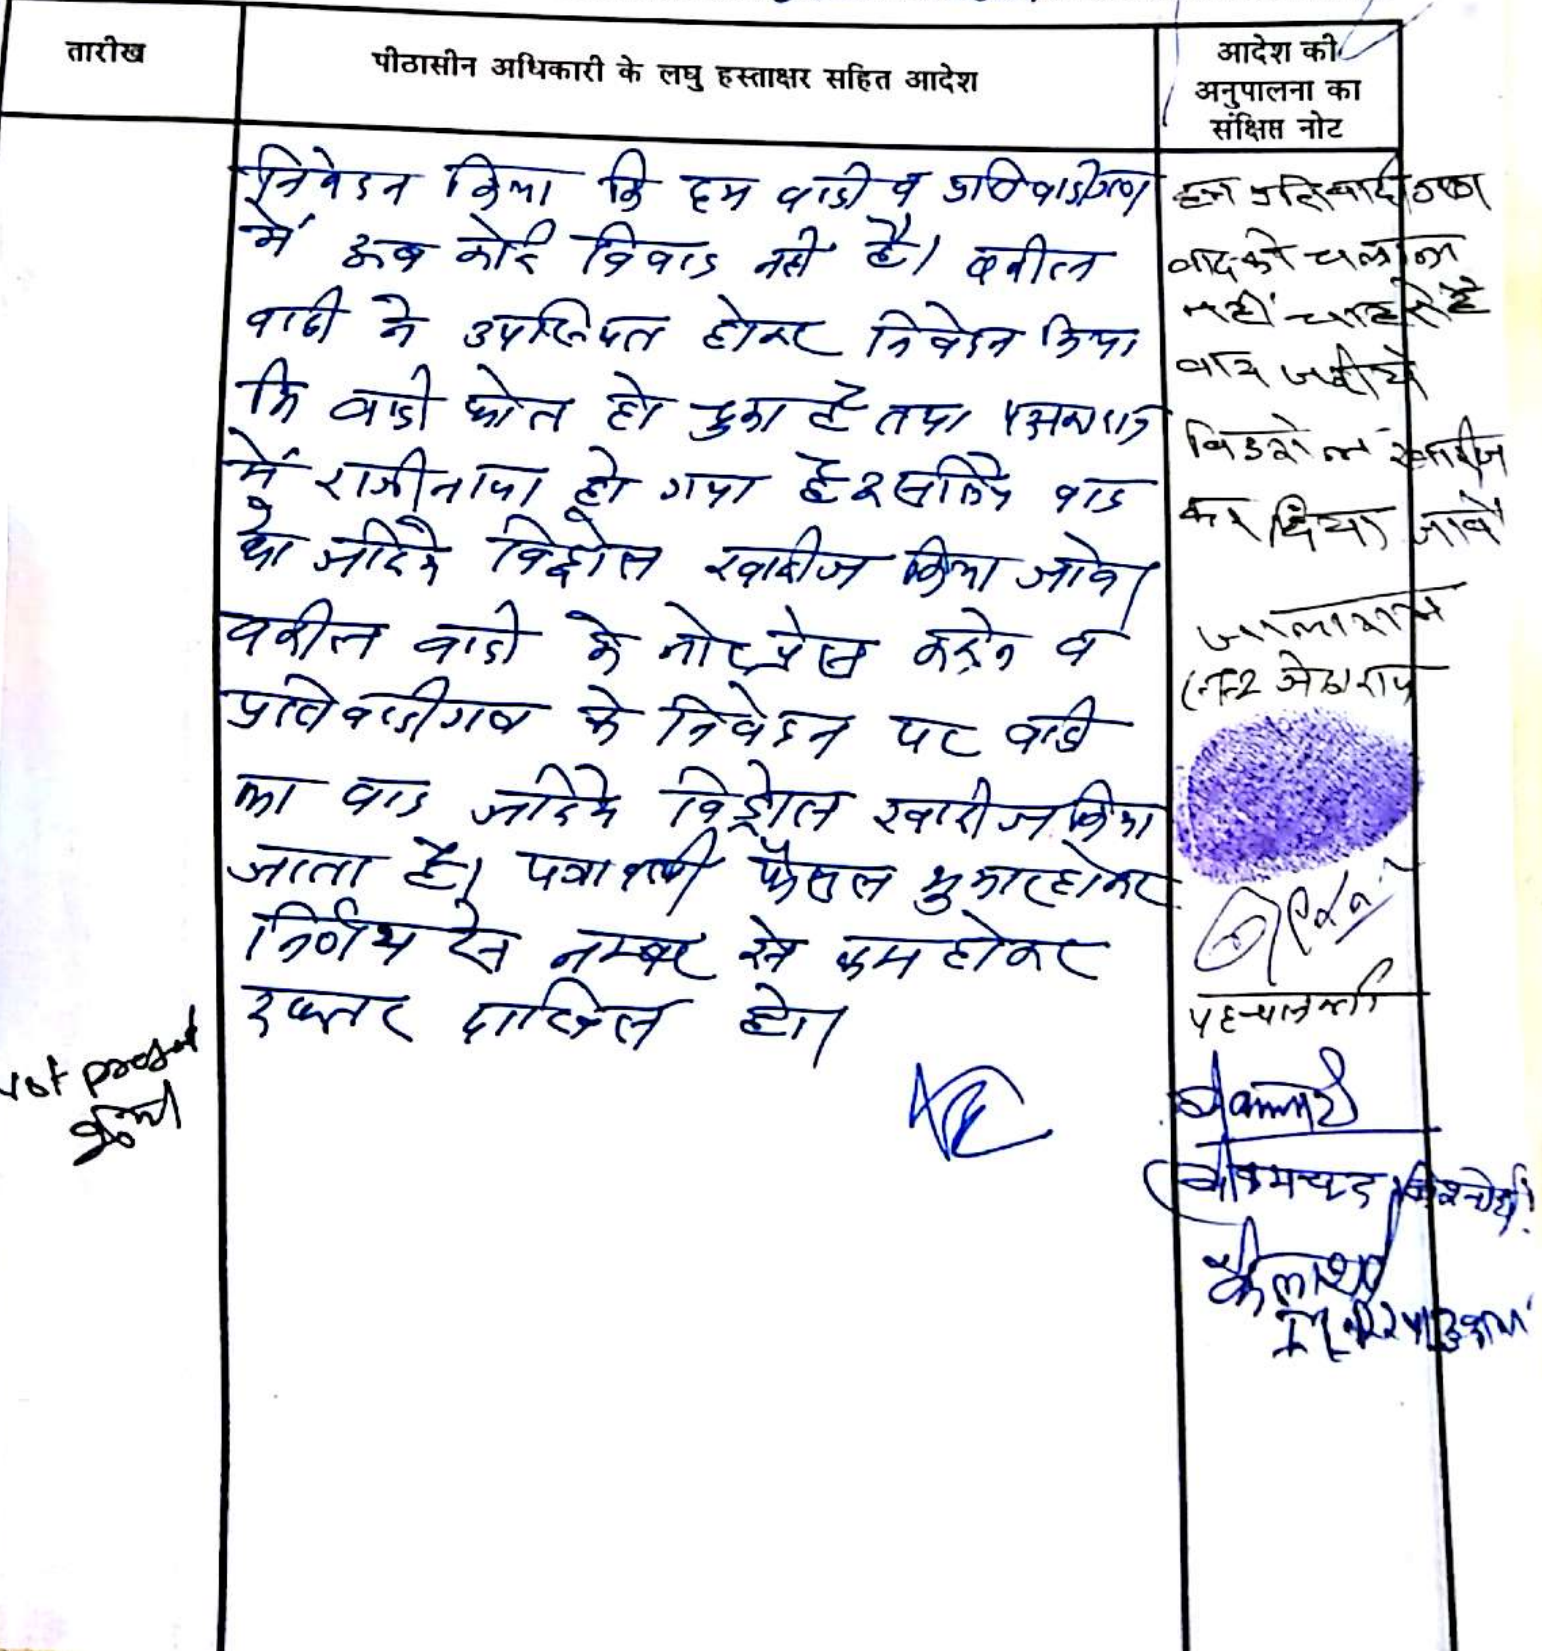 तारीख
पीठासीन अधिकारी के लघु हस्ताक्षर सहित आदेश
आदेश की
अनुपालना का
संक्षिप्त नोट
निवेदन किया कि हम वादी व प्रतिवादीगण
में अब कोई विवाद नहीं है। वकील
वादी ने उपस्थित होकर निवेदन किया
कि वादी फोत हो चुका है तथा पक्षकारान
में राजीनामा हो गया है इसलिए वाद
को जरिये विड्रोल खारीज किया जावे।
वकील वादी के नोट प्रेस करने व
प्रतिवादीगण के निवेदन पर वादी
का वाद जरिये विड्रोल खारीज किया
जाता है। पत्रावली फैसल शुमार होकर
निर्णय से नम्बर से कम होकर
दफ्तर दाखिल हो।
हम प्रतिवादीगण
वाद को चलाना
नहीं चाहते है
वाद जरीये
विडरोल खारीज
कर दिया जावे
जालाराम
जेठाराम
पहचानकर्ता
Not press
कैलाश